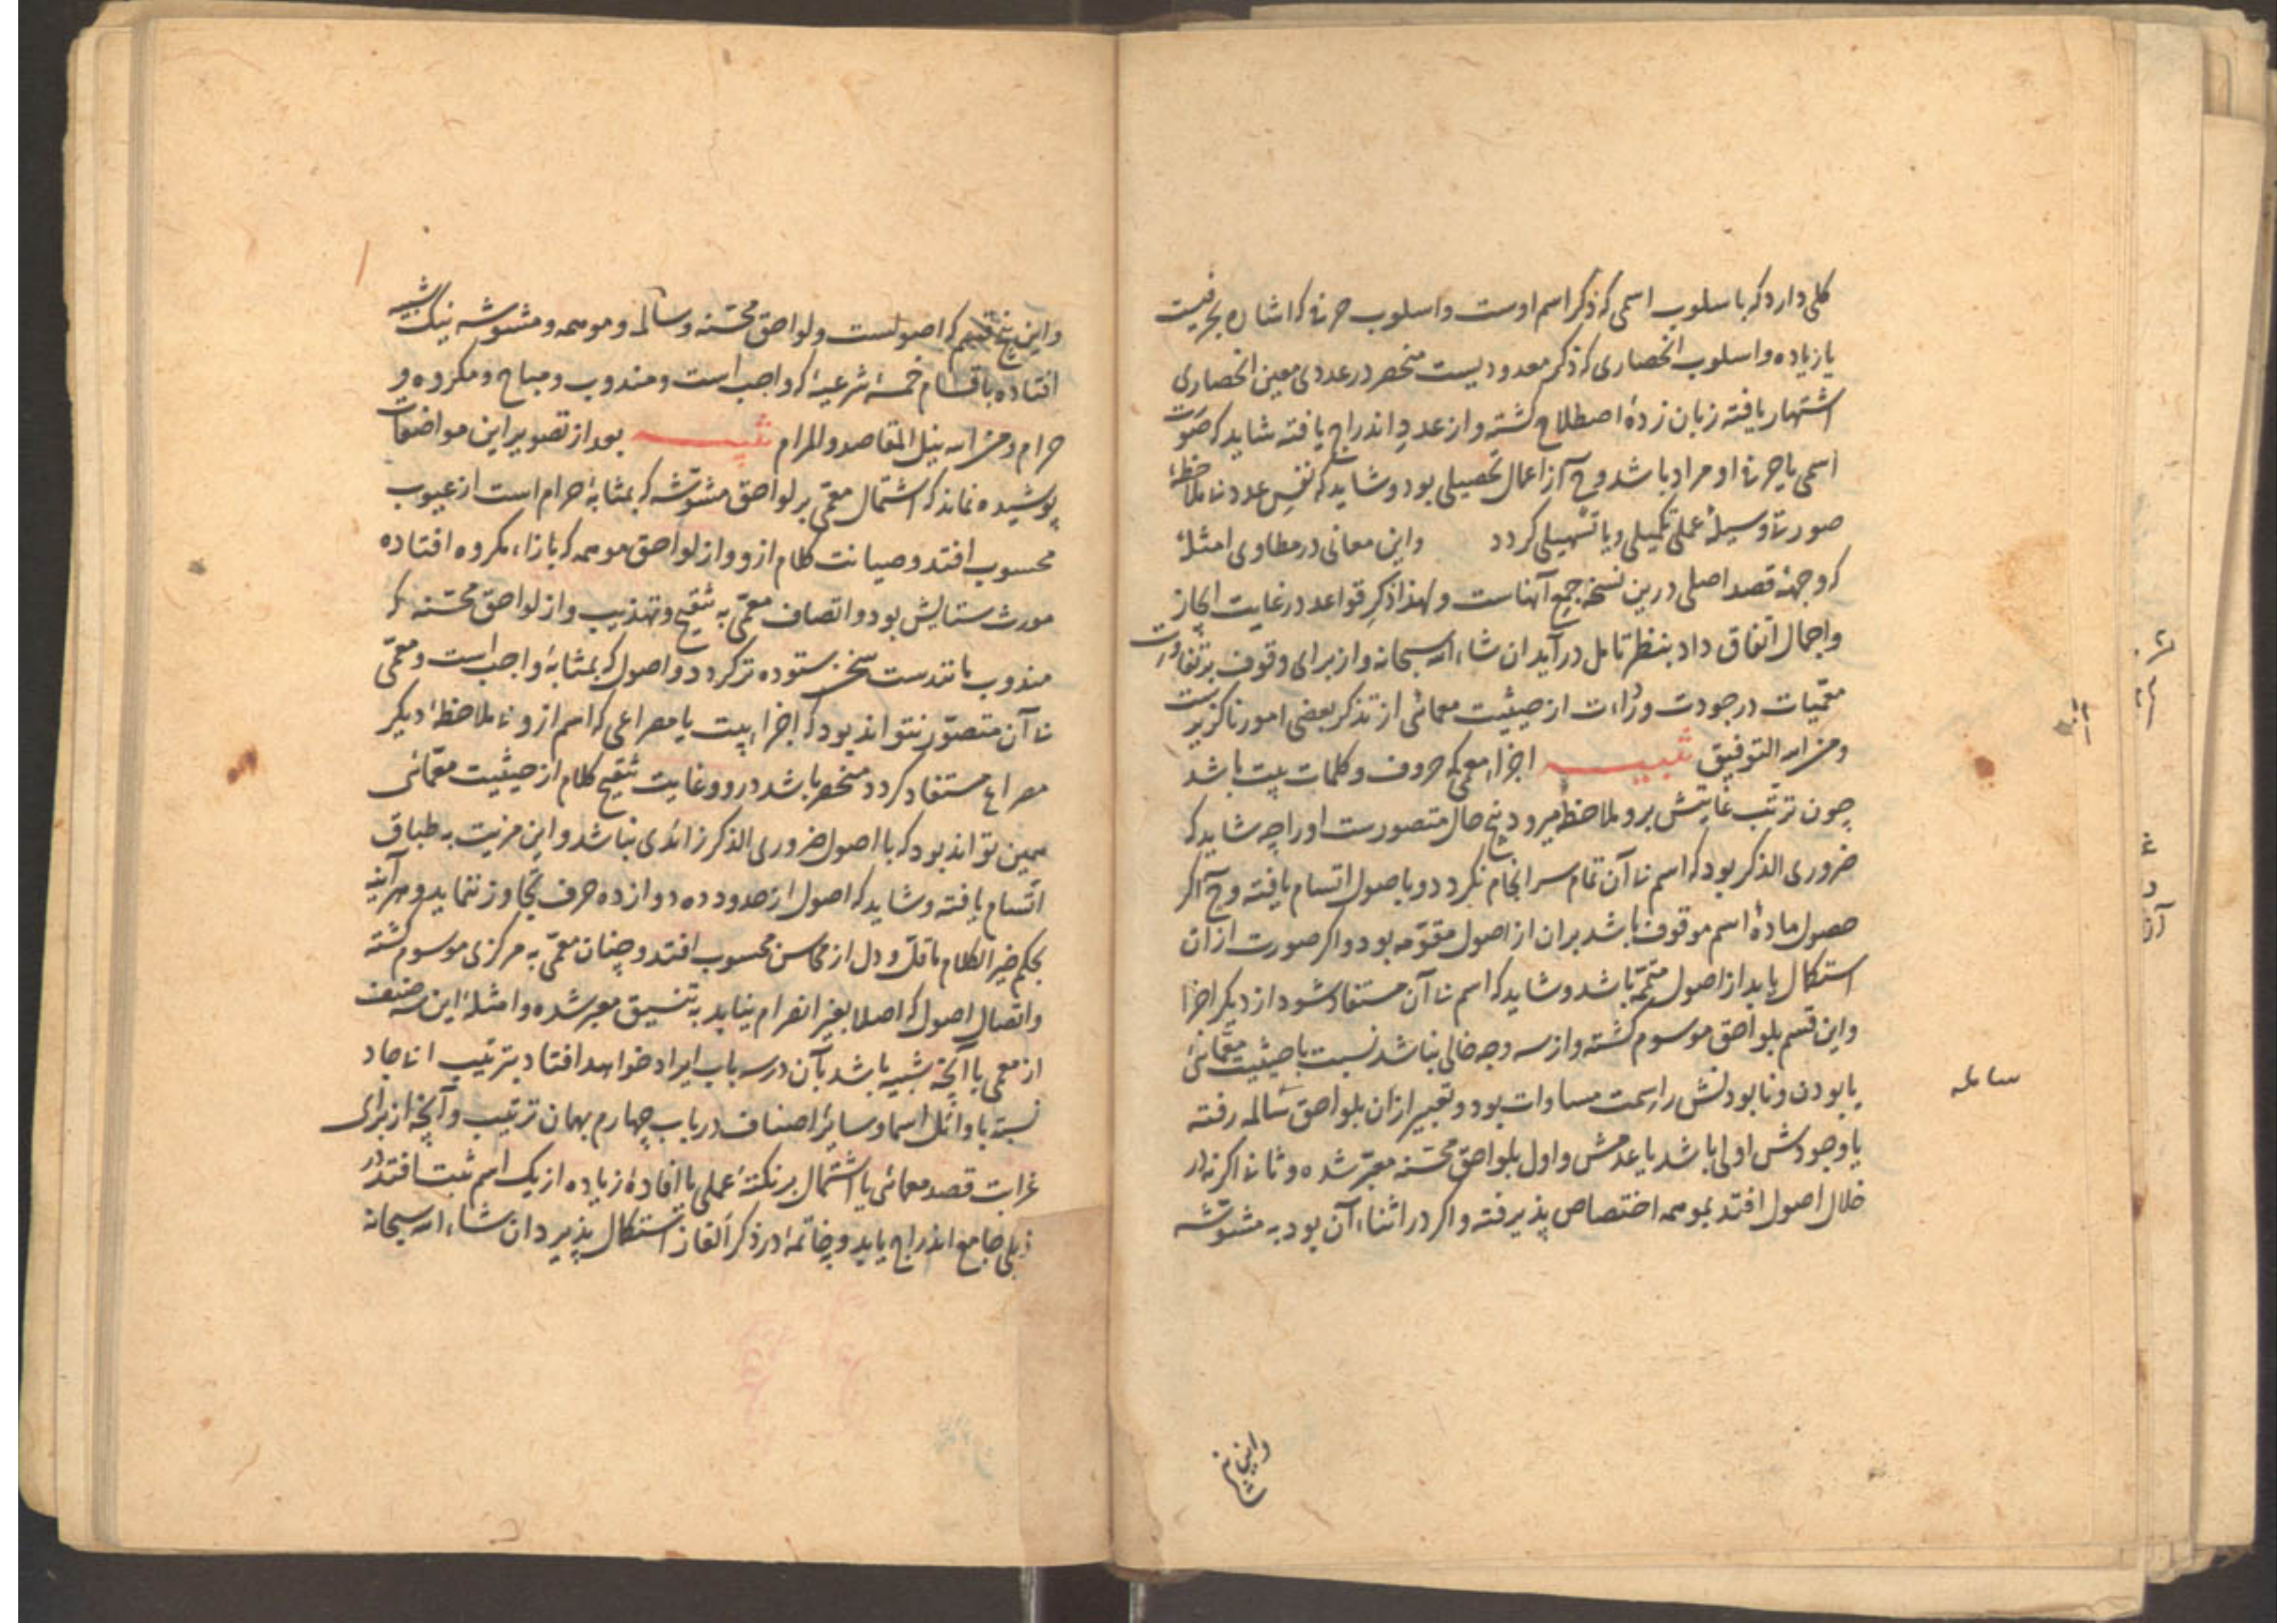 کلی دارد که باسلوب اسمی که ذکر اسم اوست واسلوب حرفی که اشاره بحرفیست
یا زیاده واسلوب انحصاری که ذکر معدودیست منحصر در عددی معین انحصاری
اشتهار یافته زبان زدهٔ اصطلاح کشته واز عدد اندراج یافته شاید که صورت
اسمی یا حرفی او مراد باشد وح از اعمال تحصیلی بود وشاید که نفس عدد بی ملاحظهٔ
صورت وسیلهٔ عملی تکمیلی ویا تسهیلی کردد واین معانی در مطاوی امثله
که وجههٔ قصد اصلی درین نسخه جمع آنهاست ولهذا ذکر قواعد در غایت ایجاز
واجمال اتفاق داد بنظر تامل درآید ان شاء الله سبحانه واز برای وقوف بر تفاوت
معمیات در جودت ورداءت از حیثیت معمائی از تذکر بعضی امور ناکزیرست
ومن الله التوفیق تنبیه اجزاء معمی که حروف وکلمات بیت باشد
چون ترتب غایتش برو ملاحظه میرود پنج حال متصورست او را چه شاید که
ضروری الذکر بود که اسم بی آن تمام سرانجام نکردد وباصول اتسام یافته وح اکر
حصول مادهٔ اسم موقوف باشد بران از اصول مقومه بود واکر صورت ازان
استکمال یابد از اصول متممه باشد وشاید که اسم بی آن مستفاد شود از دیکر اجزا
واین قسم بلواحق موسوم کشته واز سه وجه خالی نباشد نسبت با حیثیت معمائی
یا بودن ونابودنش را سمت مساوات بود وتعبیر ازان بلواحق سالمه رفته
یا وجودش اولی باشد یا عدمش واول بلواحق محسنه معبر شده وثانی اکر نه در
خلال اصول افتد بموهمه اختصاص پذیرفته واکر در اثناء آن بود به مشوشه
سامله
واین پنج
واین پنج قسم که اصولست ولواحق محسنه وسالمه وموهمه ومشوشه نیک شبیه
افتاده باقسام خمسهٔ شرعیه که واجب است ومندوب ومباح ومکروه و
حرام ومن الله نیل المقاصد والمرام تنبیه بعد از تصویر این مواضعات
پوشیده نماند که اشتمال معمی بر لواحق مشوشه که بمثابهٔ حرام است از عیوب
محسوب افتد وصیانت کلام ازو واز لواحق موهمه که بازاء مکروه افتاده
مورث ستایش بود واتصاف معمی به تنقیح وتهذیب واز لواحق محسنه که
مندوب مانندست سخن ستوده تر کردد واصول که بمثابهٔ واجب است ومعمی
بی آن متصور نتواند بود که اجزاء بیت یا مصراعی که اسم ازو بی ملاحظهٔ دیکر
مصراع مستفاد کردد منحصر باشد درو وغایت تنقیح کلام از حیثیت معمائی
همین تواند بود که با اصول ضروری الذکر زائدی نباشد واین مزیت به طباق
اتسام یافته وشاید که اصول از حدود ده دوازده حرف تجاوز ننماید وهر آینه
بحکم خیر الکلام ما قل ودل از محاسن محسوب افتد وچنان معمی به مرکزی موسوم کشته
واتصال اصول که اصلا بغیر انصرام نیابد به تنسیق معبر شده وامثلهٔ این سه صنف
از معمی با آنچه شبیه باشد بآن در سه باب ایراد خواهد افتاد بترتیب ابجاد
نسبة با اوائل اسما وسایر اصناف در باب چهارم بهمان ترتیب وآنچه از برای
غرابت قصد معمائی یا اشتمال بر نکتهٔ عملی با افادهٔ زیاده از یک اسم ثبت افتد در
ذیلی جامع اندراج یابد وخاتمه در ذکر الغاز استکمال پذیرد ان شاء الله سبحانه